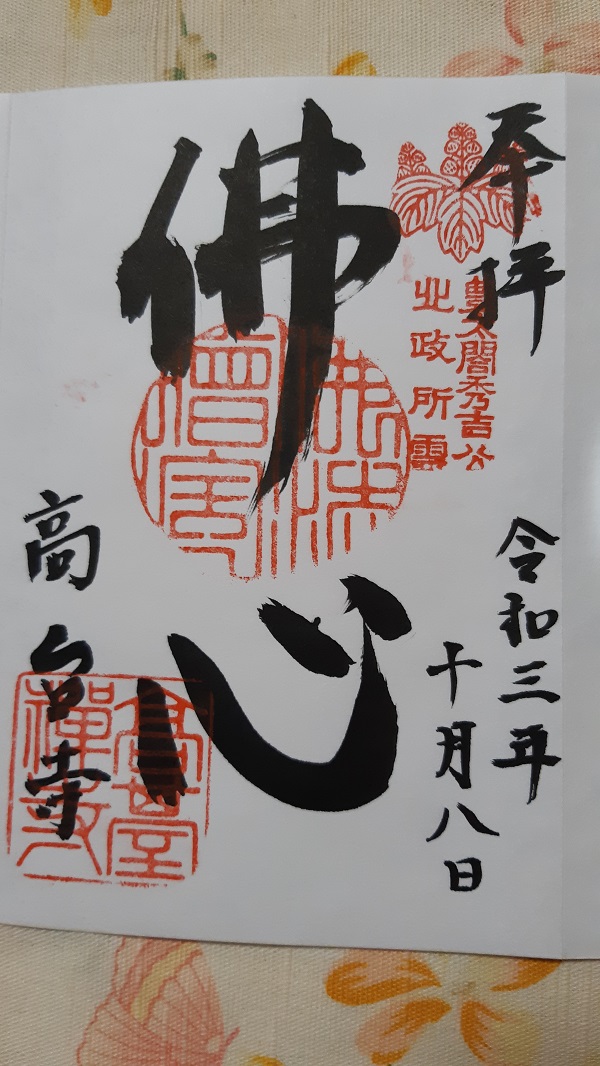 奉拝
豊太閤秀吉公
北政所霊
令和三年
十月八日
佛心
佛法僧寳
高台寺
高臺禅寺